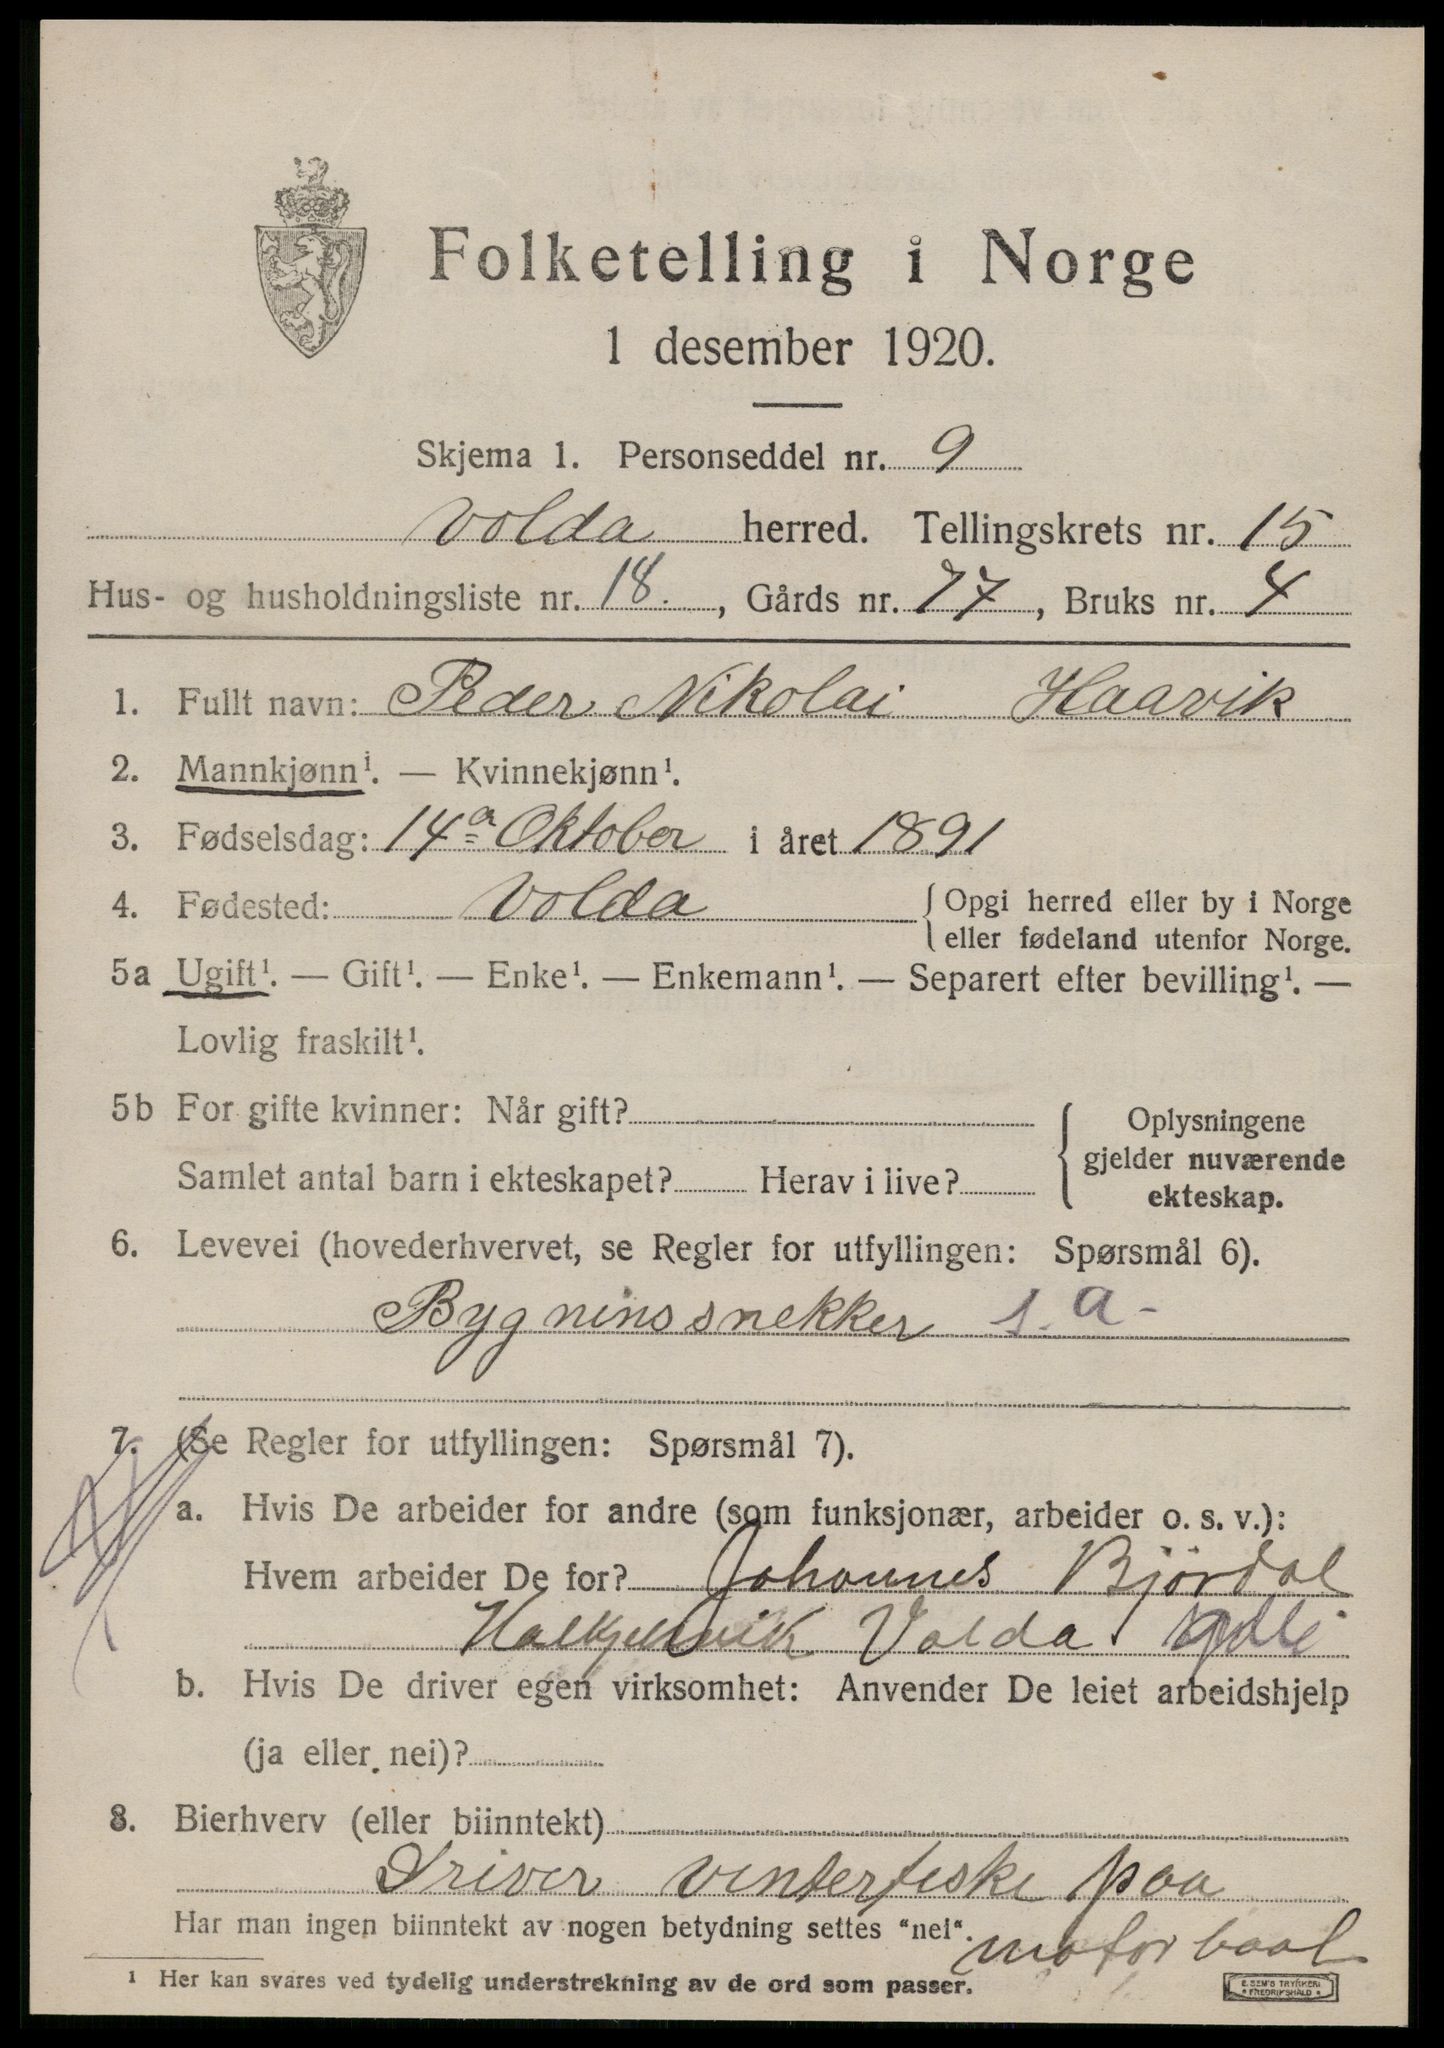 Folketelling i Norge
1 desember 1920.
Skjema 1. Personseddel nr. 9
Volda herred. Tellingskrets nr. 15
Hus- og husholdningsliste nr. 18. , Gårds nr. 77 , Bruks nr. 4
1. Fullt navn: Peder Nikolai Haavik
2. Mannkjønn¹. — Kvinnekjønn¹.
3. Fødselsdag: 14de Oktober i året 1891
4. Fødested: Volda { Opgi herred eller by i Norge
eller fødeland utenfor Norge.
5a Ugift¹. — Gift¹. — Enke¹. — Enkemann¹. — Separert efter bevilling¹. —
Lovlig fraskilt¹.
5b For gifte kvinner: Når gift? { Oplysningene
gjelder nuværende
Samlet antal barn i ekteskapet? Herav i live?
ekteskap.
6. Levevei (hovederhvervet, se Regler for utfyllingen: Spørsmål 6).
Bygninssnekker s.a-
7. (Se Regler for utfyllingen: Spørsmål 7).
a. Hvis De arbeider for andre (som funksjonær, arbeider o. s. v.):
Hvem arbeider De for? Johannes Bjørdal
Volda
b. Hvis De driver egen virksomhet: Anvender De leiet arbeidshjelp
(ja eller nei)?
8. Bierhverv (eller biinntekt)
Driver vinterfiske paa
Har man ingen biinntekt av nogen betydning settes "nei".
motorbaat
¹ Her kan svares ved tydelig understrekning av de ord som passer.
E. SEM'S TRYKKERI
FREDRIKSHALD